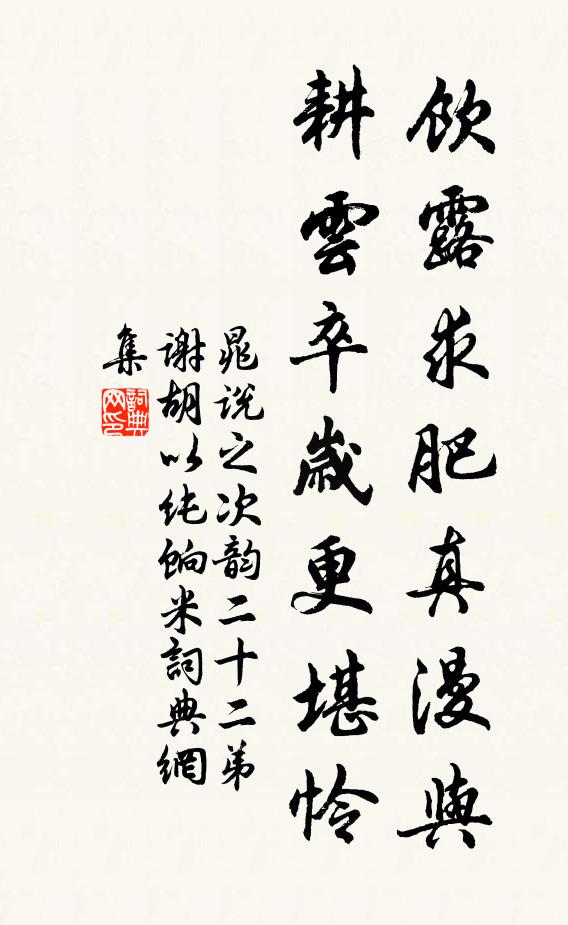 飲露求肥真漫與
耕雲卒歲更堪怜
晁说之次韵二十二弟
谢胡以纯餉米詞典網
集
詞典网印